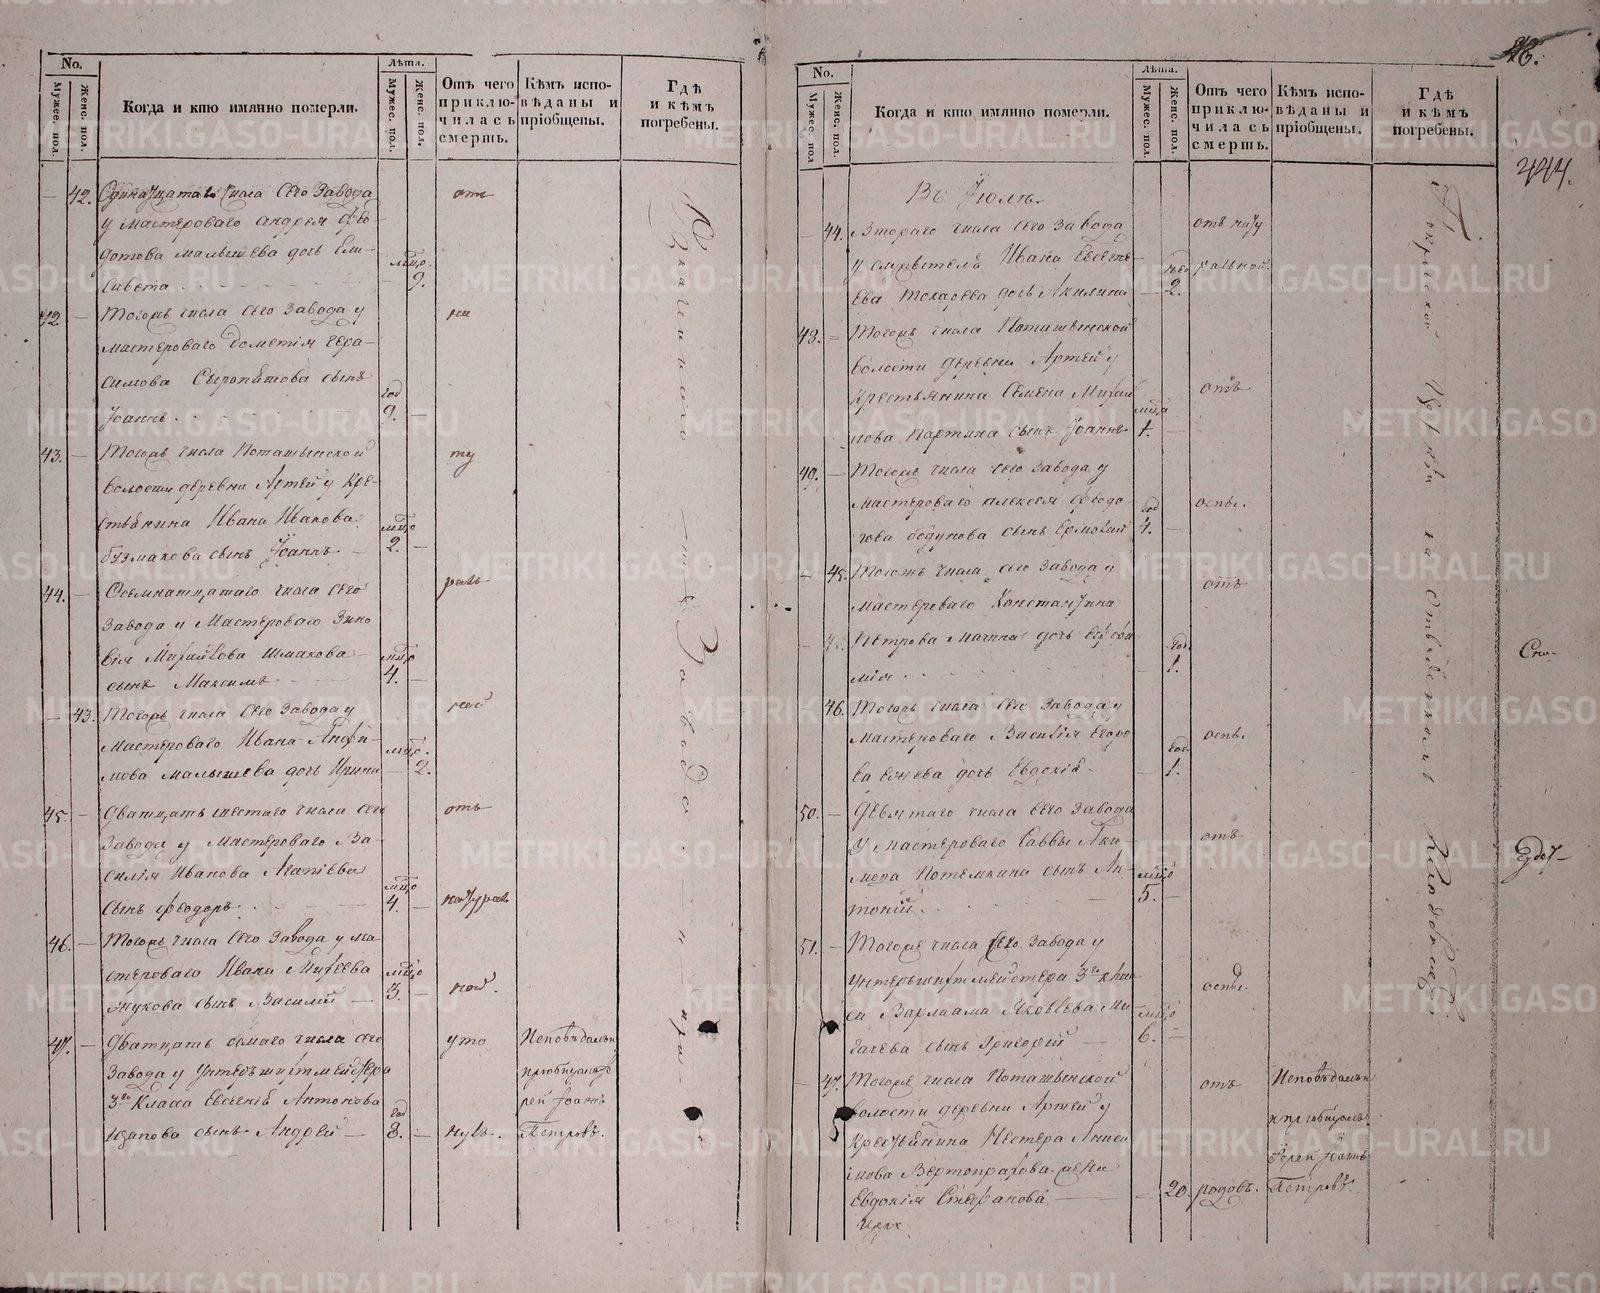 No.
Мужес. пол.
Женс. пол.
Когда и кто имянно померли.
Лѣта.
Мужес. пол.
Женс. пол.
Отъ чего приклю-чилась смерть.
Кѣмъ испо-вѣданы и пріобщены.
Гдѣ и кѣмъ погребены.
— 42. Одинадцатаго числа сего завода
у мастероваго Андрея Фео-
дотова Малышева дочь Ели-
савета — мѣсо 9.
отъ
42 — Тогожъ числа сего завода у
мастероваго Дометія Гера-
симова Сыропятова сынъ
Іоаннъ год 9. —
на
43. — Тогожъ числа Поташинской
волости деревни Артей у Кре-
стьянина Ивана Иванова
Бузмакова сынъ Іоаннъ — мѣсо 2. —
ту
44. — Осемнатцатаго числа сего
завода у Мастероваго Зино
вія Михайлова Шмакова
сынъ Максимъ мѣсо 4. —
раль
— 43. Тогожъ числа сего завода у
Мастероваго Ивана
мова Малышева дочь Ирина — мѣсо. 2.
ной
45. — Дватцать шестаго числа сего
Завода у Мастероваго Ва-
силія Иванова Агапіева
сынъ Феодоръ мѣсо 4. —
отъ
натурал
46. — Тогожъ числа сего завода у ма
стероваго Ивана Михеева
Жукова сынъ Василій — мѣсо 3. —
ной.
47. — Дватцать семаго числа сего
завода у Унтершихтмейстера
3го Класса Евгеній Антонова
сынъ Андрей — год 8. —
уто
нулъ.
Исповѣдалъ и
пріобщалъ Іе
рей Іоаннъ
Петровъ.
Завода
и при—
46.
444.
No.
Мужес. пол
Женс. пол.
Когда и кто имянно померли.
Лѣта.
Мужес. пол
Женс. пол.
Отъ чего приклю-чилась смерть.
Кѣмъ испо-вѣданы и пріобщены.
Гдѣ и кѣмъ погребены.
Въ Іюлѣ.
— 44. Втораго числа сего завода
у служителя Ивана Евгень-
ева Токарева дочь Акилина — 2.
отъ нату
ральной
48. — Тогожъ числа Поташинской
волости деревни Артей у
крестьянина Семена Михай
лова сынъ Іоаннъ мѣсо 1. —
отъ
49. — Тогожъ числа сего завода у
мастероваго Алексея Феодо-
това Бодунова сынъ Ермолай год 1. —
оспы.
— 45. Тогожъ числа сего завода у
мастероваго Константина
Петрова дочь
мія год 1.
отъ
— 46. Тогожъ числа сего завода у
мастероваго Василія Федро
ва дочь Евдокія — год 1.
оспы.
50. — Девятаго числа сего завода
у Мастероваго Саввы Аки-
мова Потемкина сынъ Ан-
тоній. мѣсо 5. —
отъ
51. — Тогоже числа сего завода у
унтершихтмейстера 3го клас
са Варлаама Яковлева Ми
гачева сынъ Григорій — мѣсо 6. —
оспы.
— 47. Тогоже числа Поташинской
волости деревни Артей у
Крестьянина Нестера Аниси
мова Вертопрахова жена
Евдокія Стефанова — — 20.
отъ
родовъ.
Исповѣдалъ
и пріобщалъ
Іерей Іоаннъ
Петровъ.
Покровской Церкви на отведенномъ Кладбищѣ